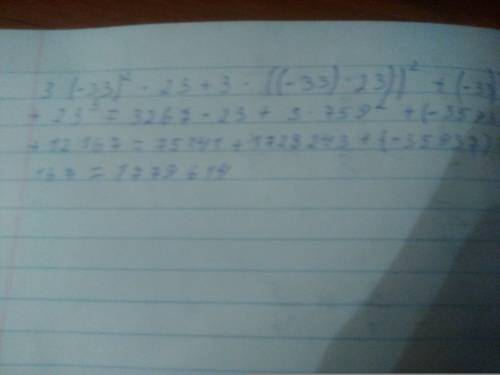 3 · (-33)² - 23 + 3 · ((-33) · 23))² + (-33)
+ 23³ = 3267 - 23 + 3 · 759² + (-3593
+ 12167 = 75141 + 1728243 + (-35937)
167 = 1779614